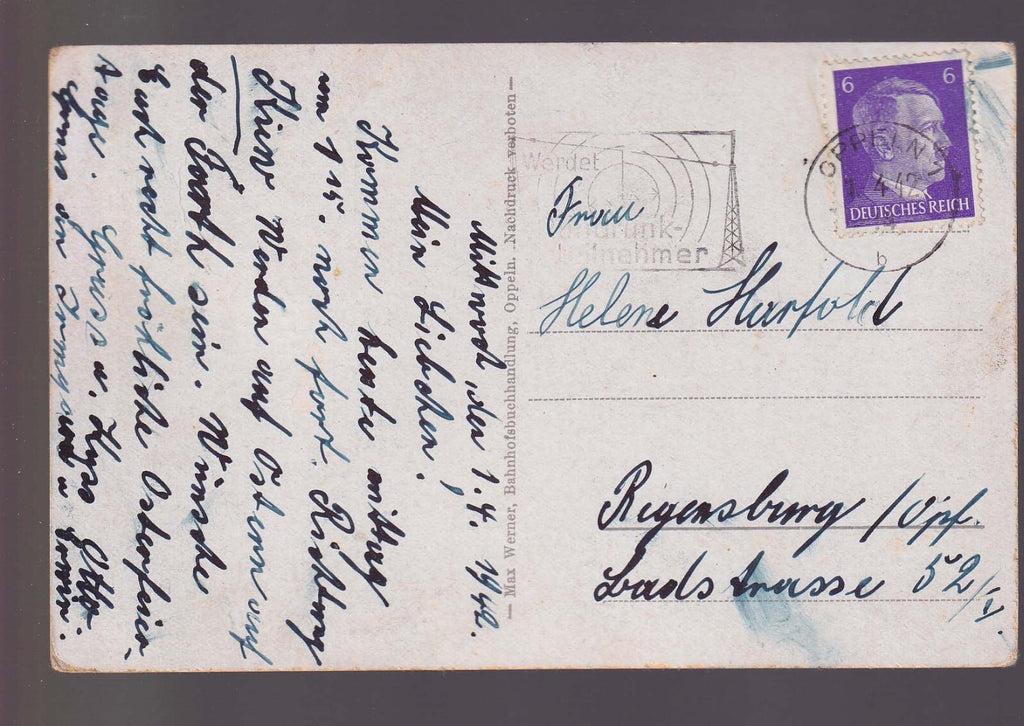 Mittwoch, den 1.4.1942.
Mein Liebchen!
Kommen heute mittag
um 1 15. noch fort. Richtung
Kiew werden auf Ostern auf
der Fahrt sein. Wünsche
Euch recht fröhliche Osterfeier-
tage. Gruss u. Kuss Otto
— Max Werner, Bahnhofsbuchhandlung, Oppeln. Nachdruck verboten —
Werdet
Rundfunk-
teilnehmer
OPPELN
1.4.42
b
6 6
DEUTSCHES REICH
Frau
Helene Harfold
Regensburg /Opf.
Badstrasse 52/I.